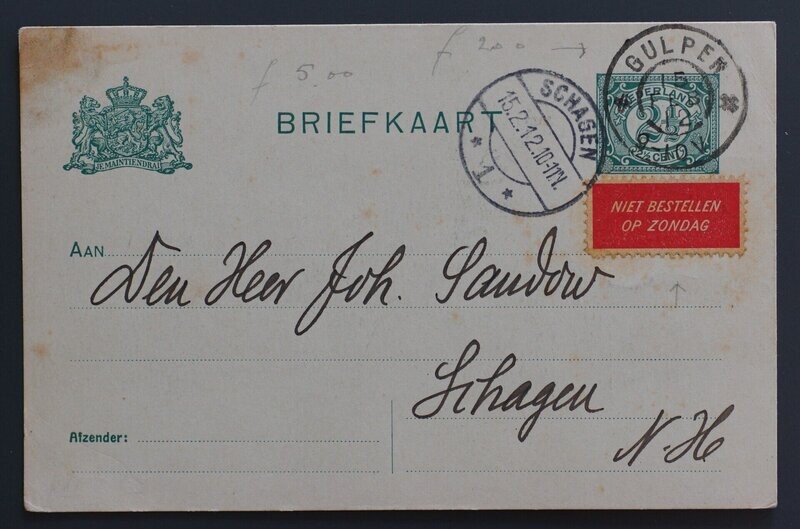 f 5.00
f 200 →
JE MAINTIENDRAI
BRIEFKAART
SCHAGEN
15.2.12.10-11V.
* 1 *
GULPEN
NEDERLAND
2½
CENT
NIET BESTELLEN
OP ZONDAG
AAN
Den Heer Joh. Sandow
Schagen
N.H
Afzender: